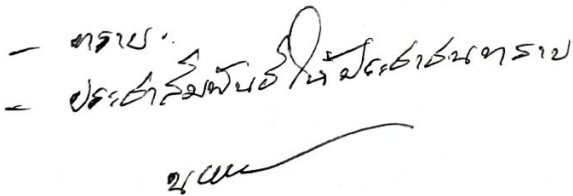 - ทราบ
- ประชาสัมพันธ์ให้ประชาชนทราบ